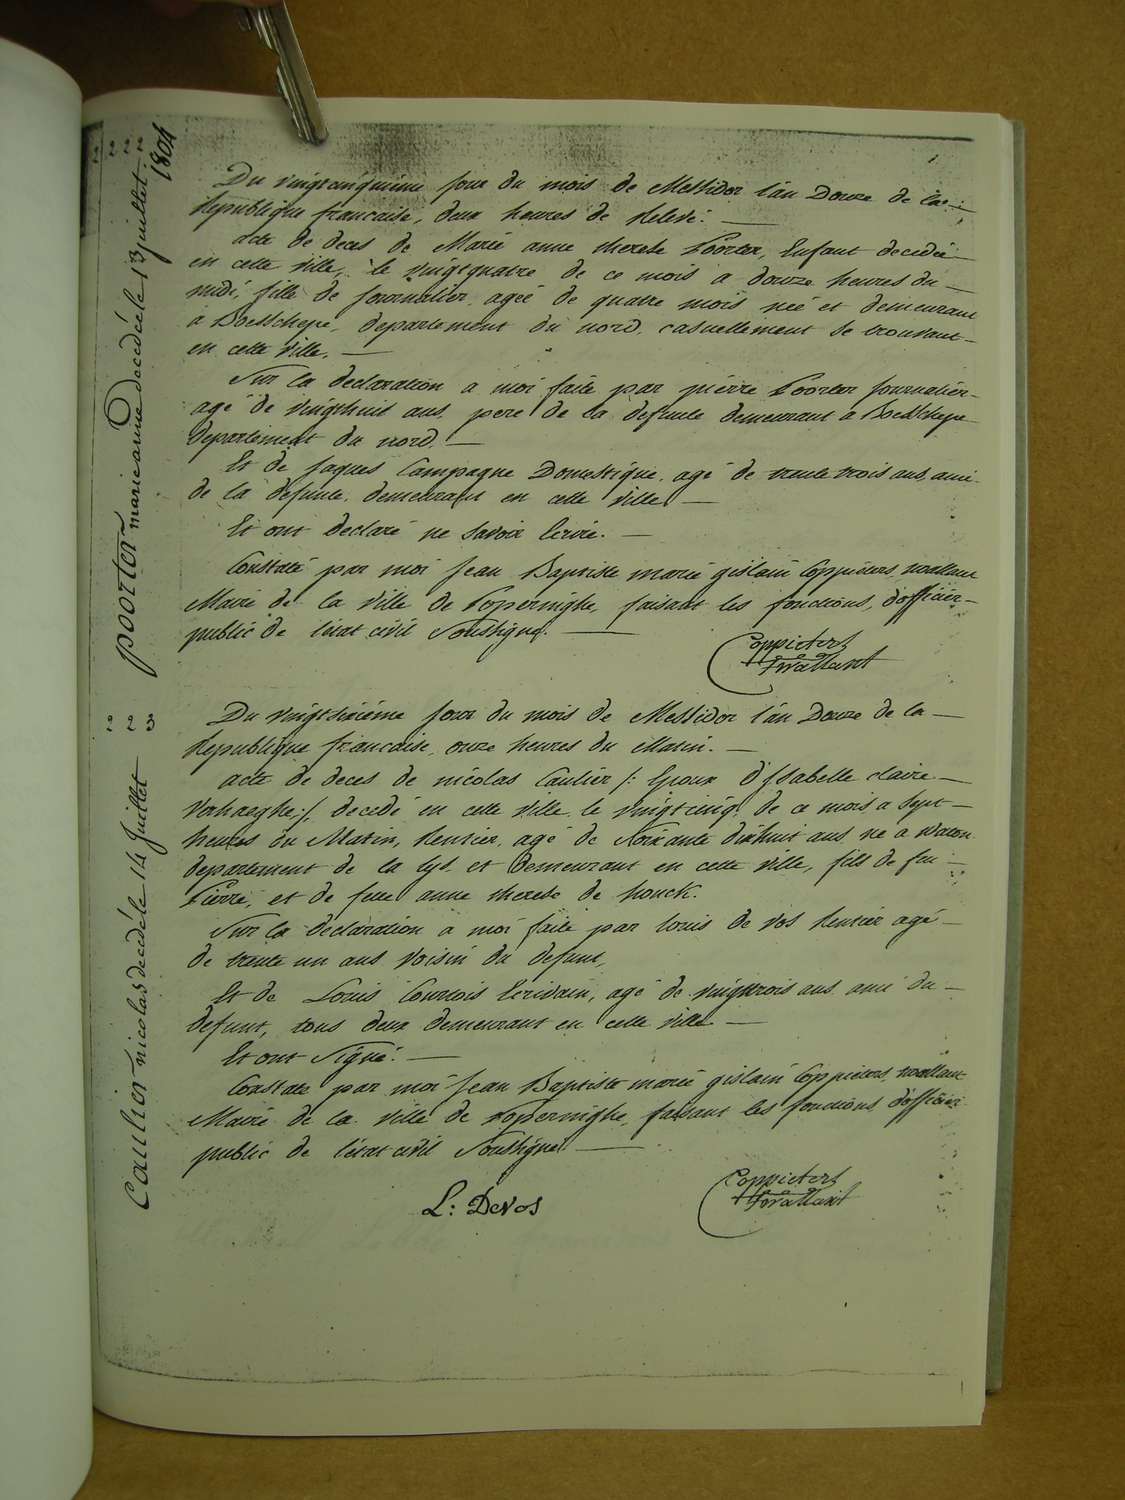 2 2 2 2
1804
poorter marie anna decedée le 13 juillet
Du vingtcinquieme jour du mois de Messidor l'an Douze de la
Republique francaise, deux heures de Relevé.
acte de deces de Marie anne therese Poorter, Enfant decedée
en cette ville, le vingtquatre de ce mois a douze heures du
midi, fille de journalier, agée de quatre mois née et demeurant
a Boesschepe, departement du nord, casuellement se trouvant
en cette ville.
Sur la declaration a moi faite par pierre Poorter journalier
agé de vingthuit ans, pere de la defunte demeurant a Boesschepe
departement du nord
Et de jaques Campagne Domestique, agé de trente trois ans, ami
de la defunte, demeurant en cette ville
Et ont declaré ne savoir Ecrire.
Constaté par moi Jean Baptiste marie gislain Coppieters, wallant
Maire de la ville de Poperinghe, faisant les fonctions, d'officier
public de l'etat civil Soussigné.
Coppieters
t'Wallant
2 2 3
Caulier nicolas decédé le 14 Juillet
Du vingtsixiéme jour du mois de Messidor l'an Douze de la
Republique francaise, onze heures du Matin.
acte de deces de nicolas Caulier /: Epoux d'Isabelle claire
Verhaeghe :/, decedé en cette ville, le vingtcinq de ce mois a sept
heures du Matin, Rentier, agé de Soixante dixhuit ans né a Waton
departement de la Lys et demeurant en cette ville, fils de feu
Pierre, et de feue anne therese de honck.
Sur la declaration a moi faite par louis de vos Rentier agé
de trente un ans voisin du defunt,
Et de Louis Courtois Ecrivain, agé de vingttrois ans ami du
defunt, tous deux demeurant en cette ville
Et ont Signé.
Constaté par moi Jean Baptiste marie gislain Coppieters, wallant
Maire de la ville de Poperinghe, faisant les fonctions, d'officier
public de l'etat civil Soussigné
L: Devos
Coppieters
t'Wallant